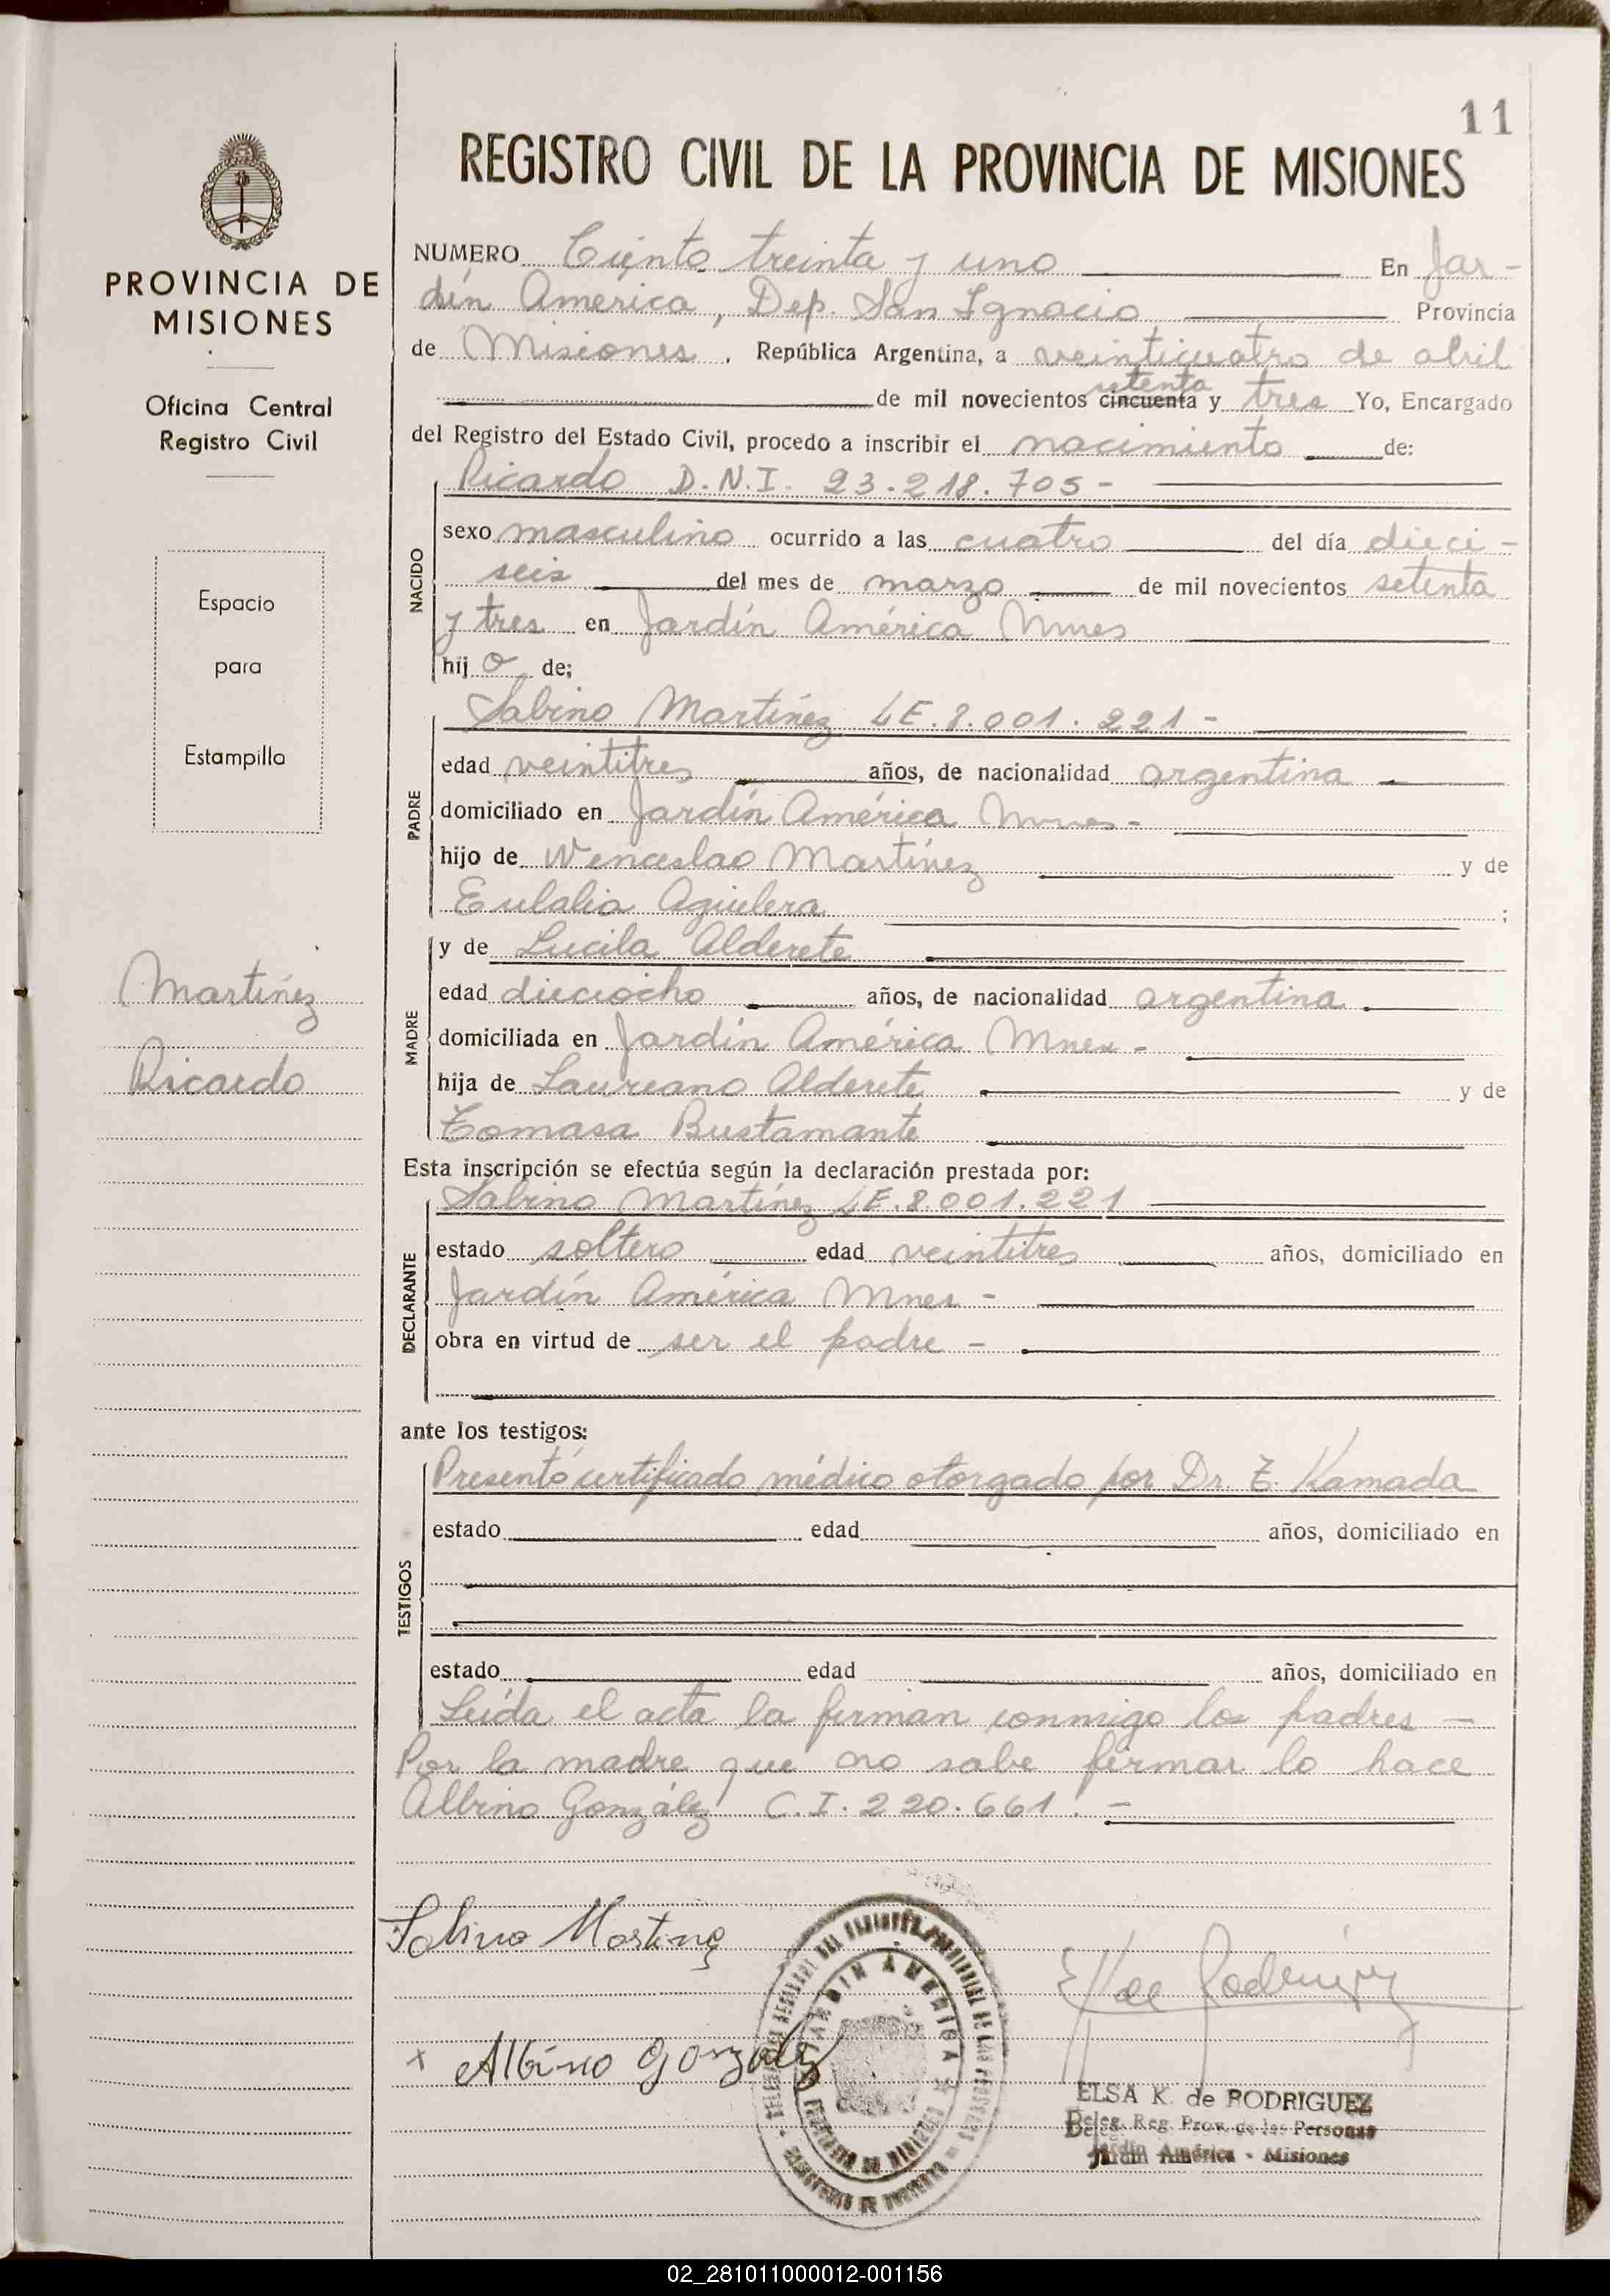 11
REGISTRO CIVIL DE LA PROVINCIA DE MISIONES
PROVINCIA DE
MISIONES
Oficina Central
Registro Civil
Espacio
para
Estampilla
Martínez
Ricardo
NUMERO Ciento treinta y uno En Jar-
dín América, Dep. San Ignacio Provincia
de Misiones, República Argentina, a veinticuatro de abril
setenta
de mil novecientos cincuenta y tres Yo, Encargado
del Registro del Estado Civil, procedo a inscribir el nacimiento de:
NACIDO
Ricardo D.N.I. 23.218.705-
sexo masculino ocurrido a las cuatro del día dieci-
seis del mes de marzo de mil novecientos setenta
y tres en Jardín América Mnes
hijo de;
PADRE
Sabino Martínez LE.8.001.221-
edad veintitres años, de nacionalidad argentina
domiciliado en Jardín América Mnes-
hijo de Wenceslao Martínez y de
Eulalia Aguilera ;
MADRE
y de Lucila Alderete
edad dieciocho años, de nacionalidad argentina
domiciliada en Jardín América Mnes-
hija de Laureano Alderete y de
Tomasa Bustamante
Esta inscripción se efectúa según la declaración prestada por:
DECLARANTE
Sabino Martínez LE.8.001.221
estado soltero edad veintitres años, domiciliado en
Jardín América Mnes-
obra en virtud de ser el padre-
ante los testigos:
TESTIGOS
Presentó certificado médico otorgado por Dr. T. Kamada
estado edad años, domiciliado en
estado edad años, domiciliado en
Leída el acta la firman conmigo los padres-
Por la madre que no sabe firmar lo hace
Albino González C.I. 220.661.-
Sabino Martinez
x Albino Gonzalez
JARDIN AMERICA
ELSA K. de RODRIGUEZ
Deleg. Reg. Prov. de las Personas
Jardín América - Misiones
02_281011000012-001156